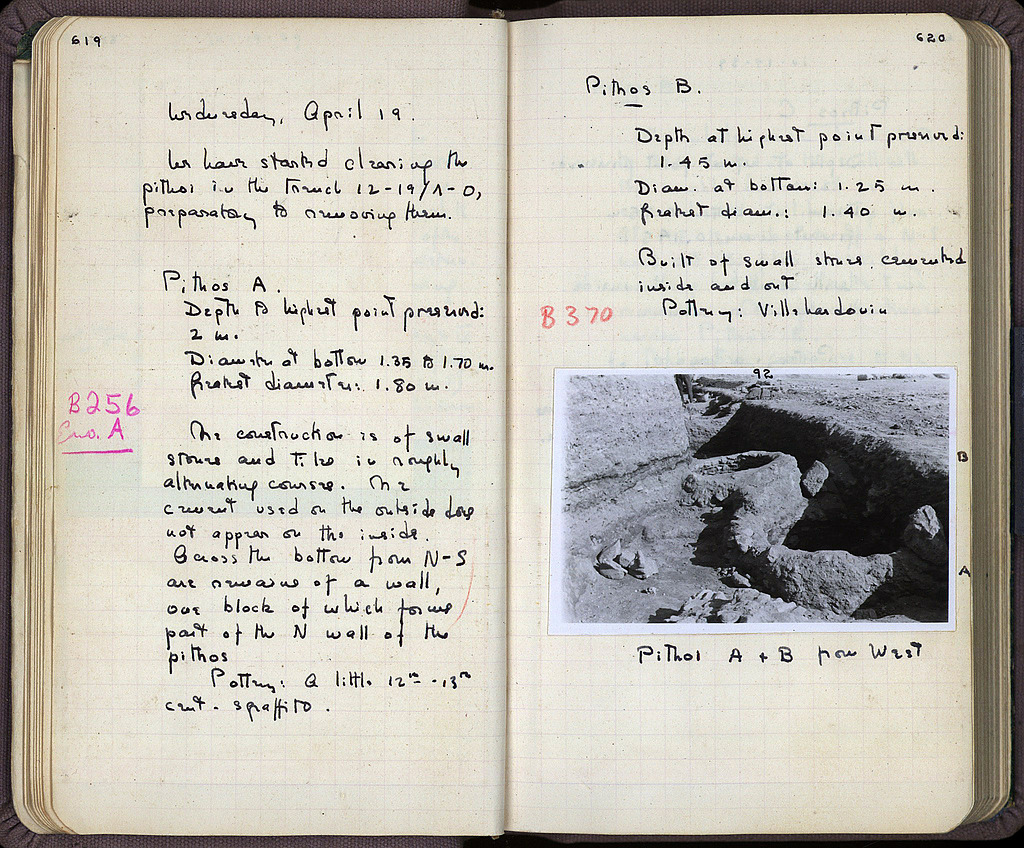 619
Wednesday, April 19.
We have started clearing the
pithoi in the trench 12-19/Λ-O,
preparatory to removing them.
Pithos A.
Depth to highest point preserved:
2 m.
Diameter at bottom 1.35 to 1.70 m.
Greatest diameter: 1.80 m.
B256
A
The construction is of small
stones and tiles in roughly
alternating courses. The
cement used on the outside does
not appear on the inside.
Across the bottom from N-S
are remains of a wall,
one block of which forms
part of the N wall of the
pithos
Pottery: A little 12th - 13th
cent. sgraffito.
620
Pithos B.
Depth at highest point preserved:
1.45 m.
Diam. at bottom: 1.25 m.
Greatest diam.: 1.40 m.
Built of small stones cemented
inside and out
B370
Pottery: Villehardouin
92
B
A
Pithoi A + B from West